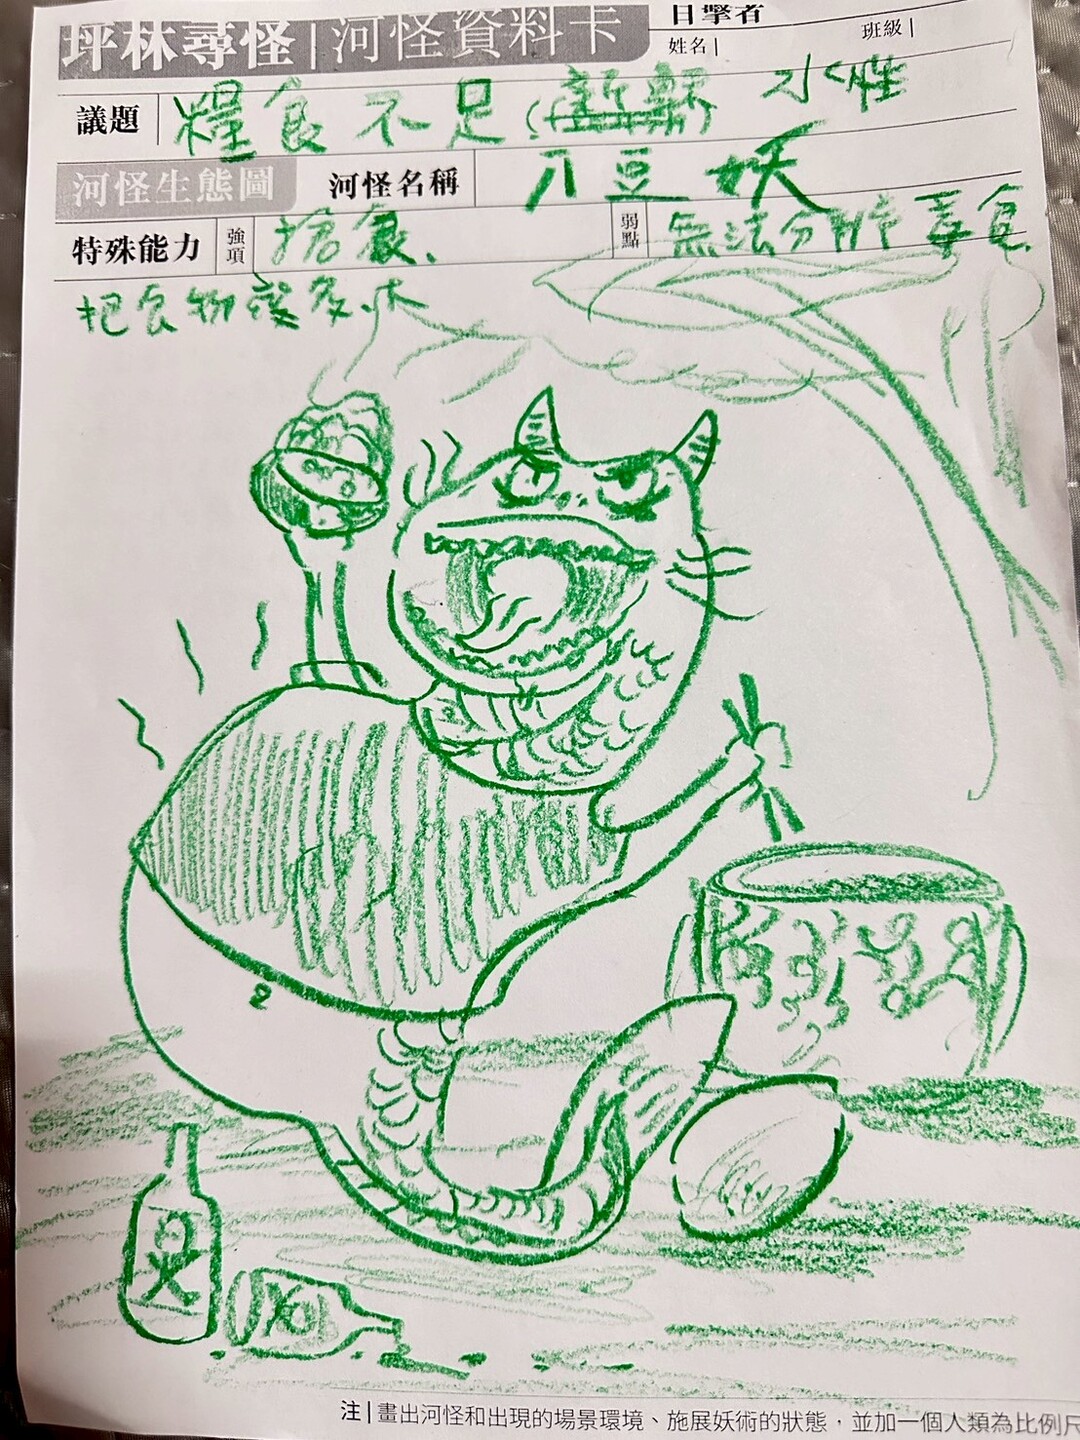 坪林尋怪|河怪資料卡
目擊者
姓名|
班級|
議題 糧食不足(新鮮) 水性
河怪生態圖 河怪名稱 八豆妖
特殊能力 強項 搶食、 弱點 無法分辨毒食
把食物變多
注|畫出河怪和出現的場景環境、施展妖術的狀態,並加一個人類為比例尺